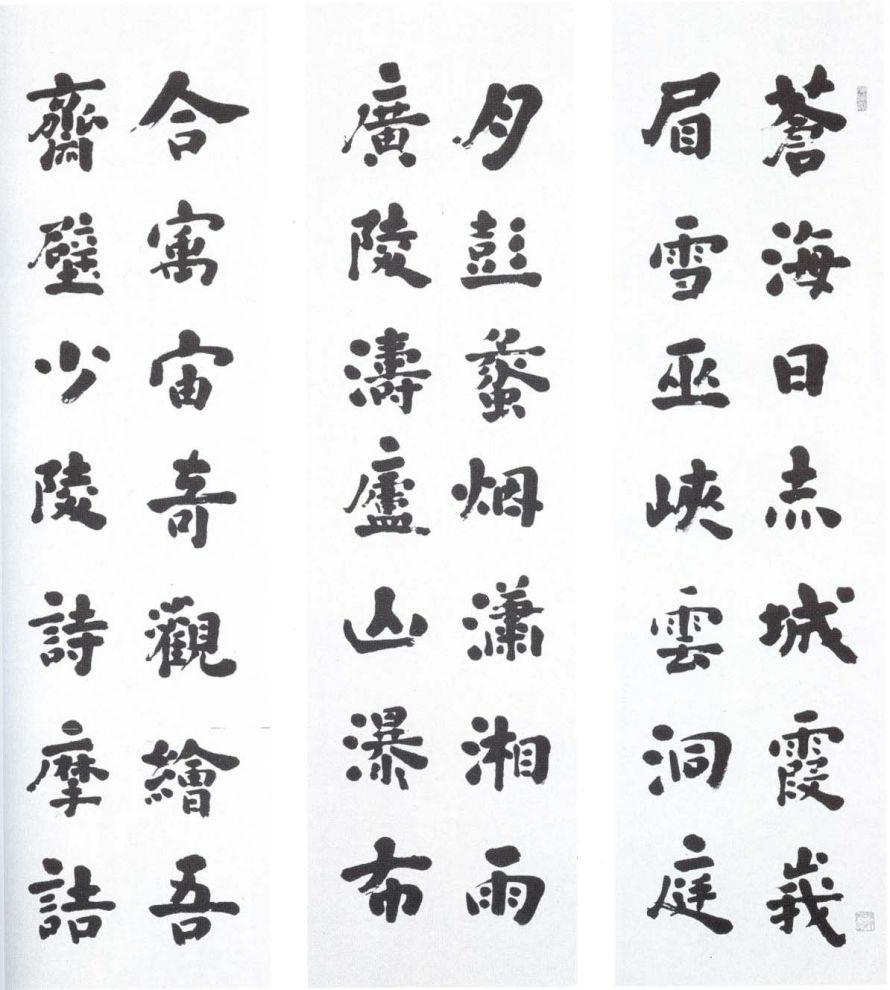 蒼海日赤城霞峩
眉雪巫峽雲洞庭
月彭蠡烟瀟湘雨
廣陵濤廬山瀑布
合寓宙奇觀繪吾
齋壁少陵詩摩詰